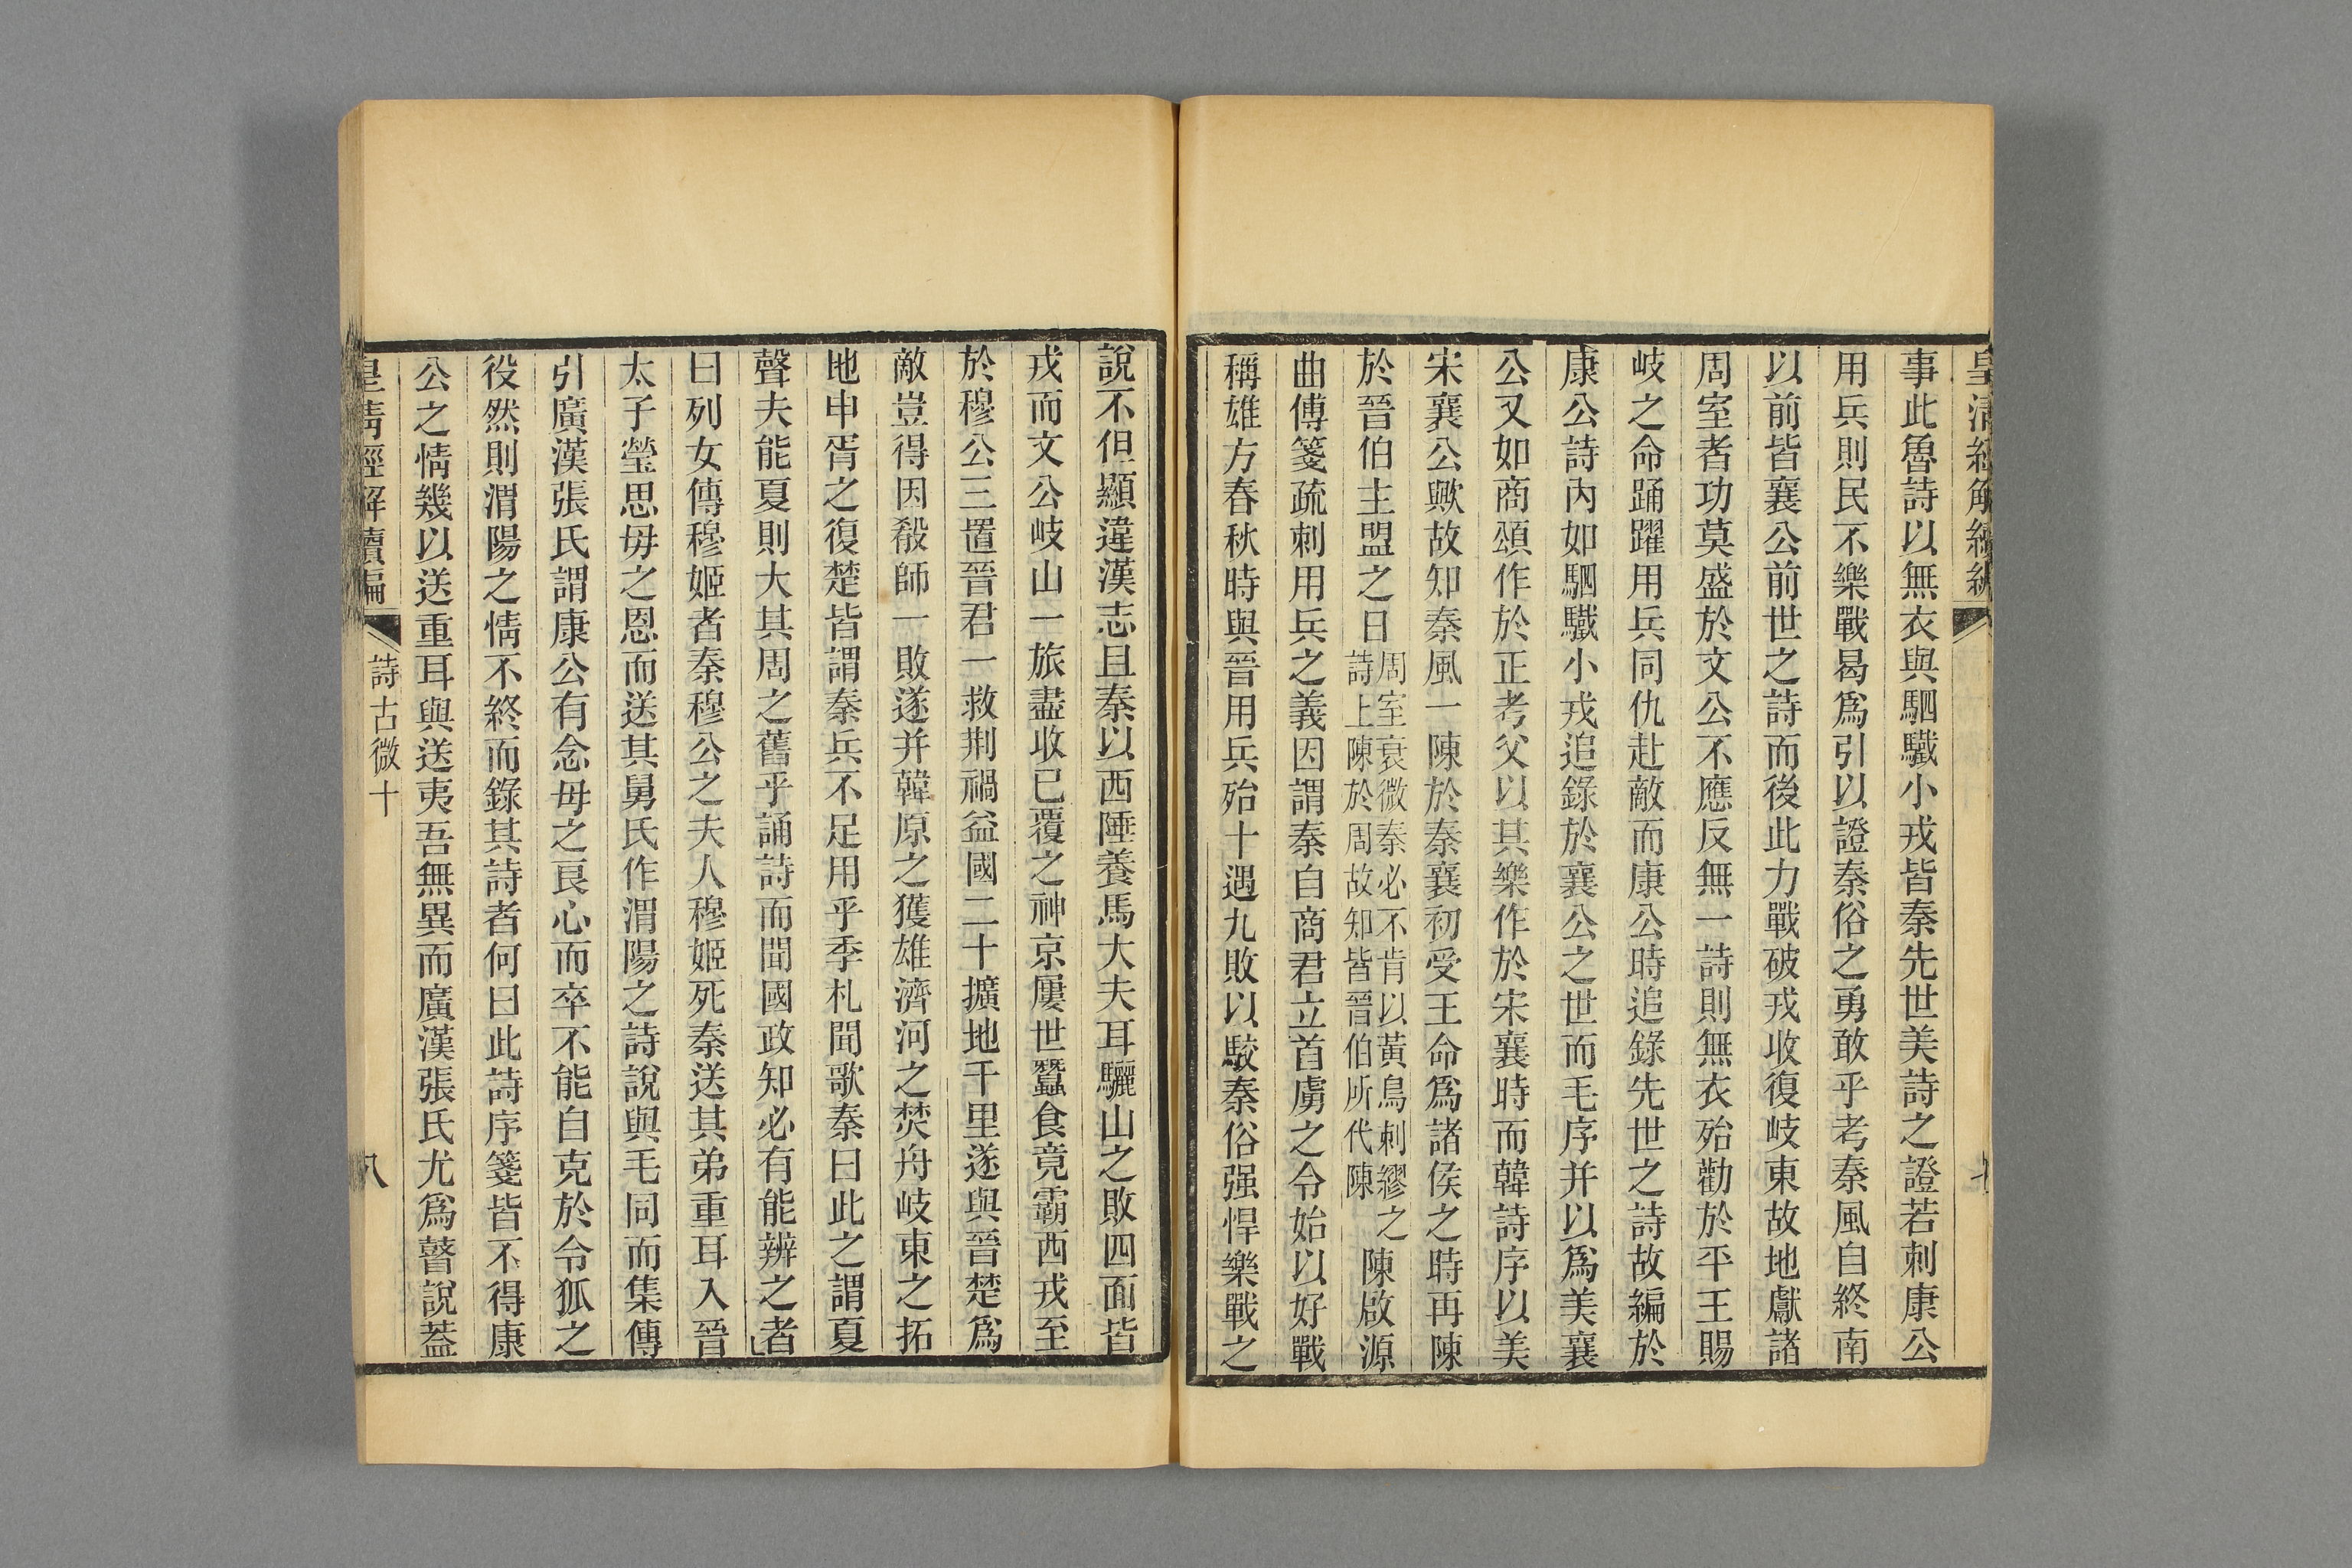 皇清經解續編
事此魯詩以無衣與駟驖小戎皆秦先世美詩之證若刺康公
用兵則民不樂戰曷爲引以證秦俗之勇敢乎考秦風自終南
以前皆襄公前世之詩而後此力戰破戎收復岐東故地獻諸
周室者功莫盛於文公不應反無一詩則無衣殆勸於平王賜
岐之命踊躍用兵同仇赴敵而康公時追錄先世之詩故編於
康公詩內如駟驖小戎追錄於襄公之世而毛序并以爲美襄
公又如商頌作於正考父以其樂作於宋襄時而韓詩序以美
宋襄公歟故知秦風一陳於秦襄初受王命爲諸侯之時再陳
於晉伯主盟之日周室衰微秦必不肯以黃鳥刺繆之詩上陳於周故知皆晉伯所代陳陳啟源
曲傅箋疏刺用兵之義因謂秦自商君立首虜之令始以好戰
稱雄方春秋時與晉用兵殆十遇九敗以駮秦俗强悍樂戰之
說不但顯違漢志且秦以西陲養馬大夫耳驪山之敗四面皆
戎而文公岐山一旅盡收已覆之神京屢世蠶食竟霸西戎至
於穆公三置晉君一救荆禍益國二十擴地千里遂與晉楚爲
敵豈得因殽師一敗遂并韓原之獲雄濟河之焚舟岐東之拓
地申胥之復楚皆謂秦兵不足用乎季札聞歌秦曰此之謂夏
聲夫能夏則大其周之舊乎誦詩而聞國政知必有能辨之者
曰列女傳穆姬者秦穆公之夫人穆姬死秦送其弟重耳入晉
太子瑩思毋之恩而送其舅氏作渭陽之詩說與毛同而集傳
引廣漢張氏謂康公有念毋之良心而卒不能自克於令狐之
役然則渭陽之情不終而錄其詩者何曰此詩序箋皆不得康
公之情幾以送重耳與送夷吾無異而廣漢張氏尤爲瞽說葢
皇清經解續編
詩古微十
八